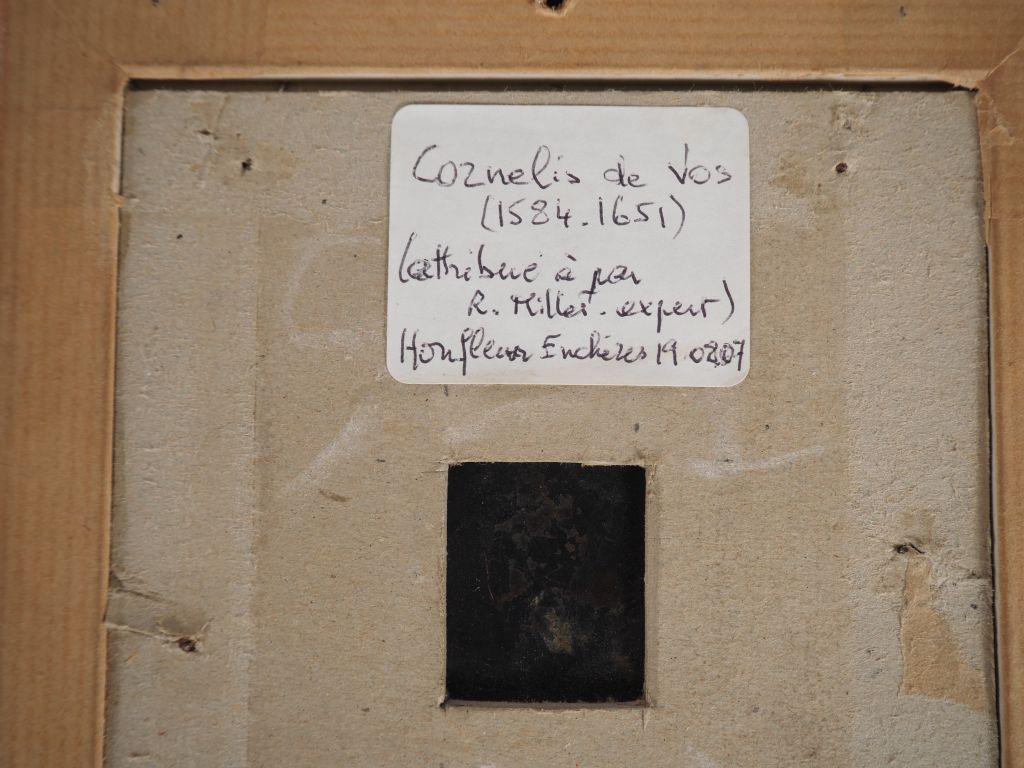 Cornelis de Vos
(1584.1651)
(attribué à par
R. Millet. expert)
Honfleur Enchères 19.08.07